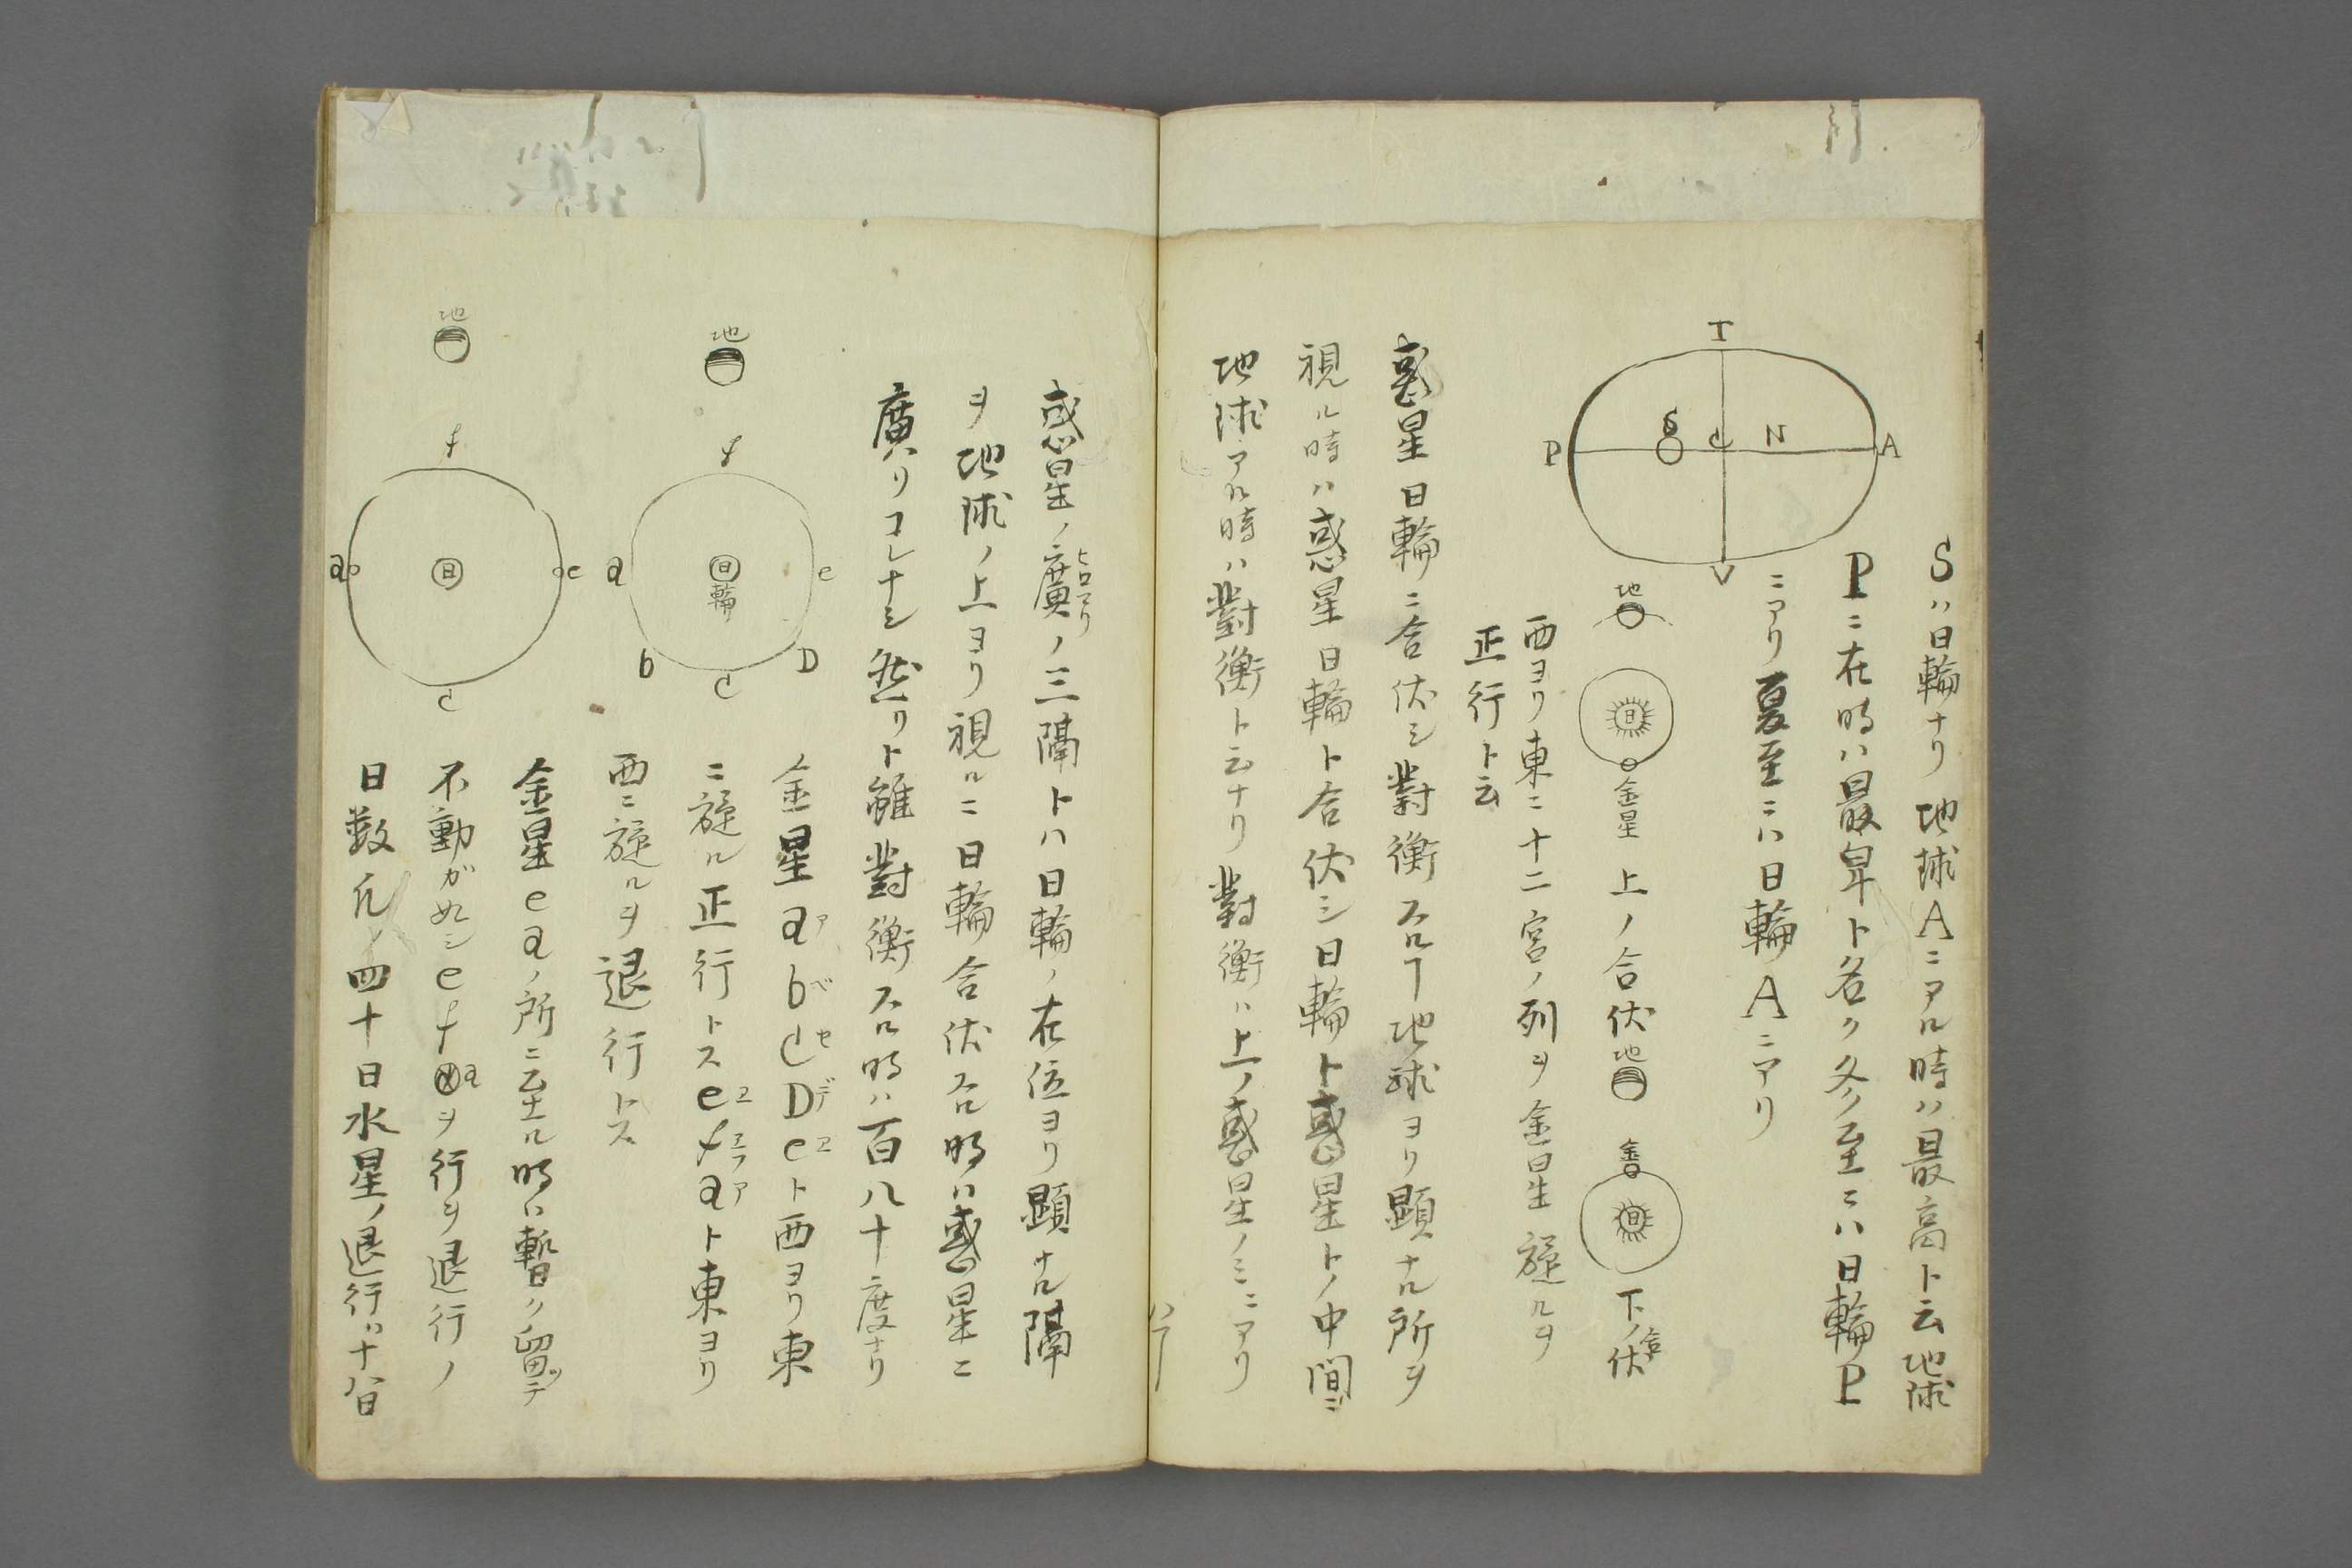 T
P
S
C
N
A
V
Sハ日輪ナリ地球Aニアル時ハ最高ト云地球
Pニ在時ハ最卑ト名ク冬至ニハ日輪P
ニアリ夏至ニハ日輪Aニアリ
地
日
金星
上ノ合伏
地
金星
日
下ノ合伏
西ヨリ東ニ十二宮ノ列ヲ金星旋ルヲ
正行ト云
惑星日輪ニ合伏シ對衡スルヿ地球ヨリ顕ナル所ヲ
視ル時ハ惑星日輪ト合伏シ日輪ト惑星トノ中間ニ
地球アル時ハ對衡ト云ナリ對衡ハ上ノ惑星ノミニアリ
惑星ノ廣ノ三隔トハ日輪ノ在位ヨリ顕ナル隔
ヒロマリ
ヲ地球ノ上ヨリ視ルニ日輪合伏スル時ハ惑星ニ
廣リコレナシ然リト雖對衡スル時ハ百八十度ナリ
地
f
a
日輪
e
b
D
C
金星a b C D eト西ヨリ東
ア ベ セ デ エ
ニ旋ル正行トスe f aト東ヨリ
エ エフ ア
西ニ旋ルヲ退行トス
地
f
a
日
e
C
金星e aノ所ニ至ル時ハ暫ク留ツテ
不動ガ如シe f aヲ行ヲ退行ノ
日数凡四十日水星ノ退行ハ十八日